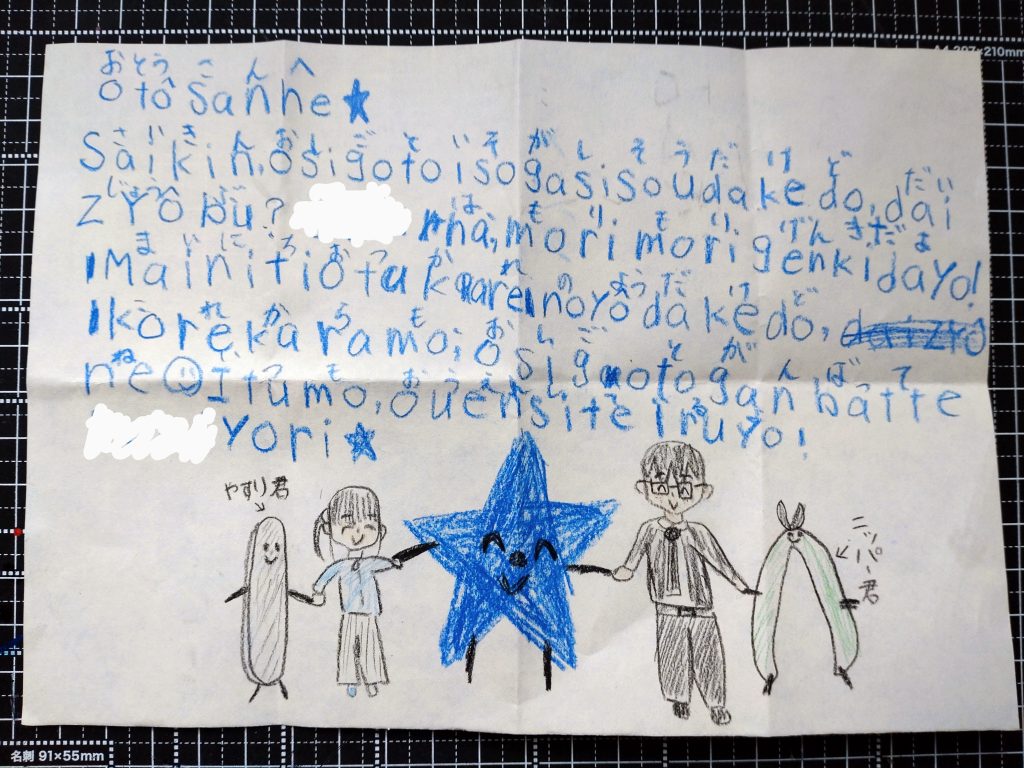 A4 297×210mm
おとうさんへ
otôsanhe★
さいきん おしごといそがしそうだけど だい
Saikin, osigotoisogasisoudakedo, dai
じょうぶ は もりもりげんきだよ
zyôbu? ha, morimorigenkidayo!
まいにちおつかれのようだけど
Mainitiotukarenoyôdakedo,
これからも おしごとがんばって
korekaramo, osigotoganbatte
ね いつも おうえんしているよ
ne Itumo, ouensiteiruyo!
yori★
やすり君
ニッパー君
名刺 91×55mm